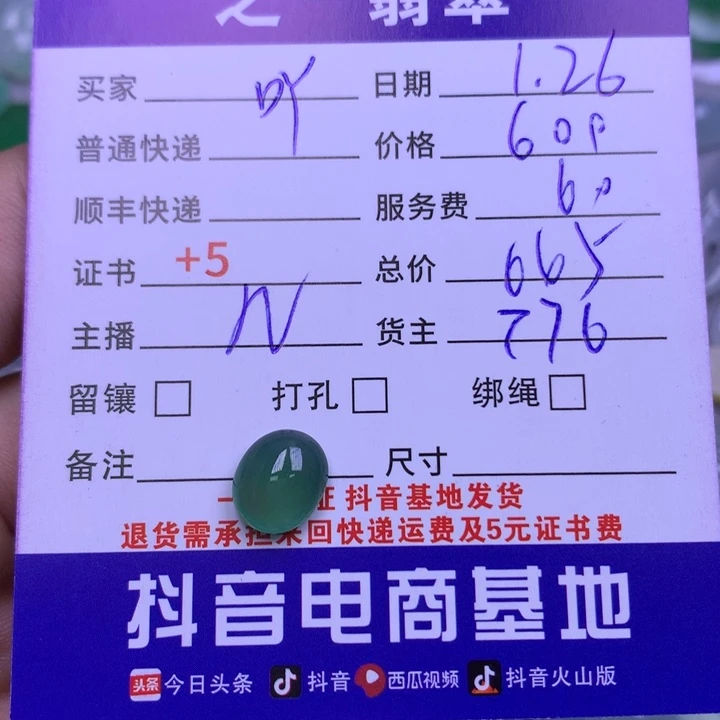 之 翡翠
买家 日期 1.26
普通快递 价格 600
顺丰快递 服务费 60
证书 +5 总价 665
主播 N 货主 776
留镶 打孔 绑绳
备注 尺寸
证 抖音基地发货
退货需承担来回快递运费及5元证书费
抖音电商基地
头条 今日头条 抖音 西瓜视频 抖音火山版